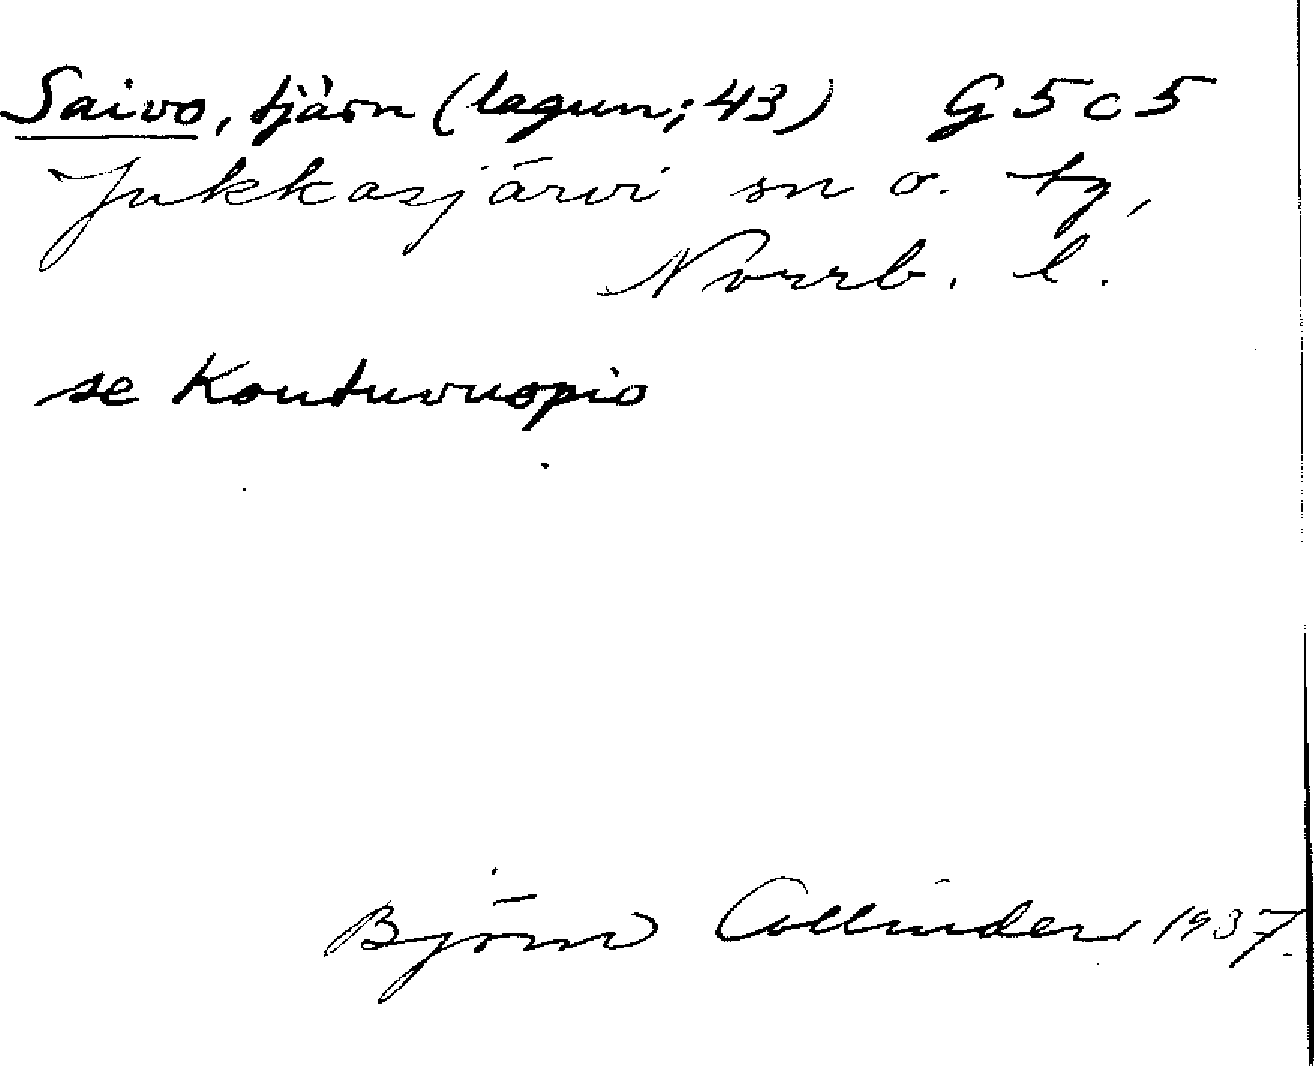 Saivo, tjärn (lagun; 43) G 5 c 5
Jukkasjärvi sn o. tg,
Norrb. l.
se Koutuvuopio
Björn Collinder 1937.